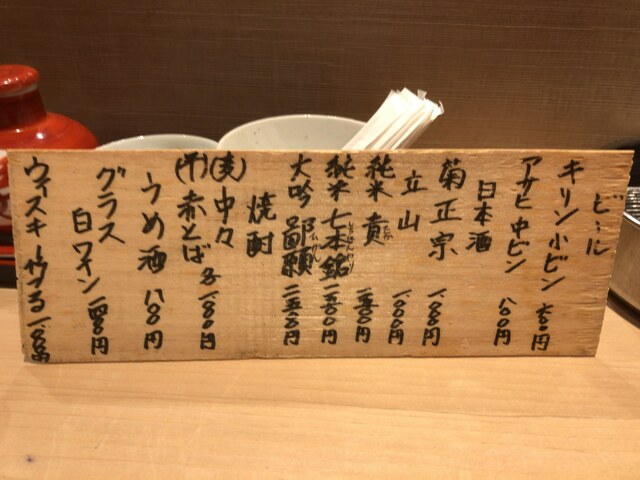 ビール
キリン小ビン 六〇〇円
アサヒ中ビン 八〇〇円
日本酒
菊正宗 一、〇〇〇円
立山 一、〇〇〇円
純米 貴 一、三〇〇円
純米 七本鎗 一、三〇〇円
大吟 鄙願 二、三〇〇円
焼酎
(麦) 中々
(芋) 赤とんぼ 各 一、〇〇〇円
うめ酒 八〇〇円
グラス
白ワイン 一、四〇〇円
ウィスキー